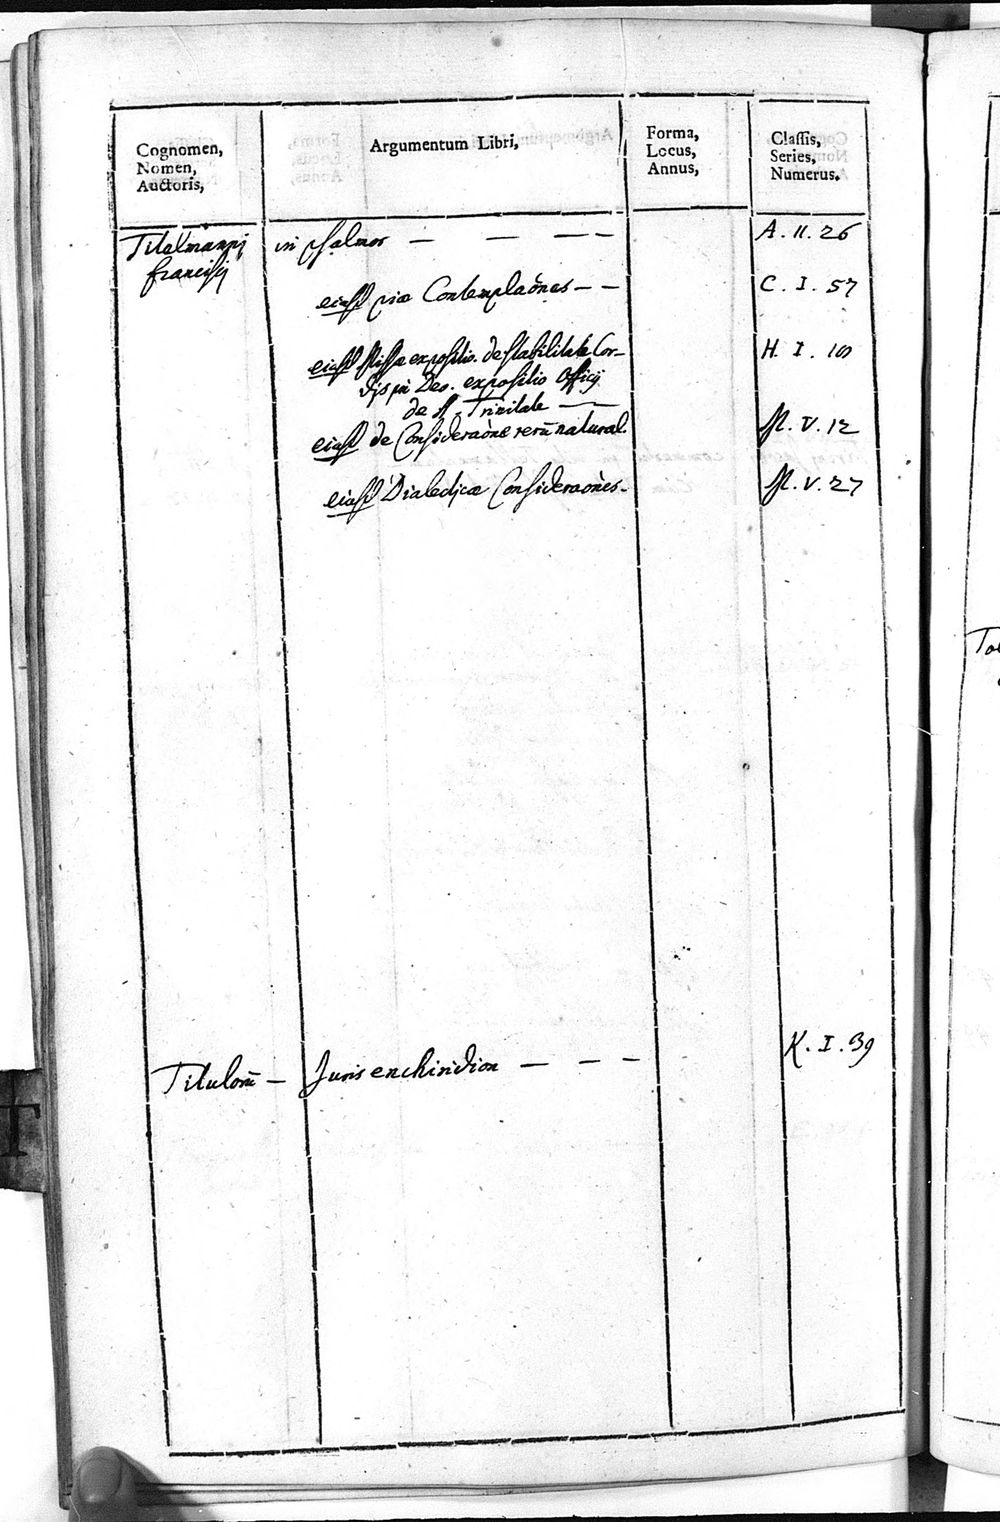 Cognomen,
Nomen,
Auctoris,
Argumentum Libri,
Forma,
Locus,
Annus,
Classis,
Series,
Numerus.
Titelmannj in psalmos — — — — A. II. 26
francisci
eiusd piæ Contemplaões — — C. I. 57
eiusd Missæ expositio. de stabilitate Cor- H. I. 101
dis in Deo. expositio Officij
de S. Trinitate — —
eiusd de Consideraõne rerũ natural. N. V. 12
eiusd Dialecticæ Consideraões - N. V. 27
Titulorũ — Juris enchiridion — — — K. I. 39
T